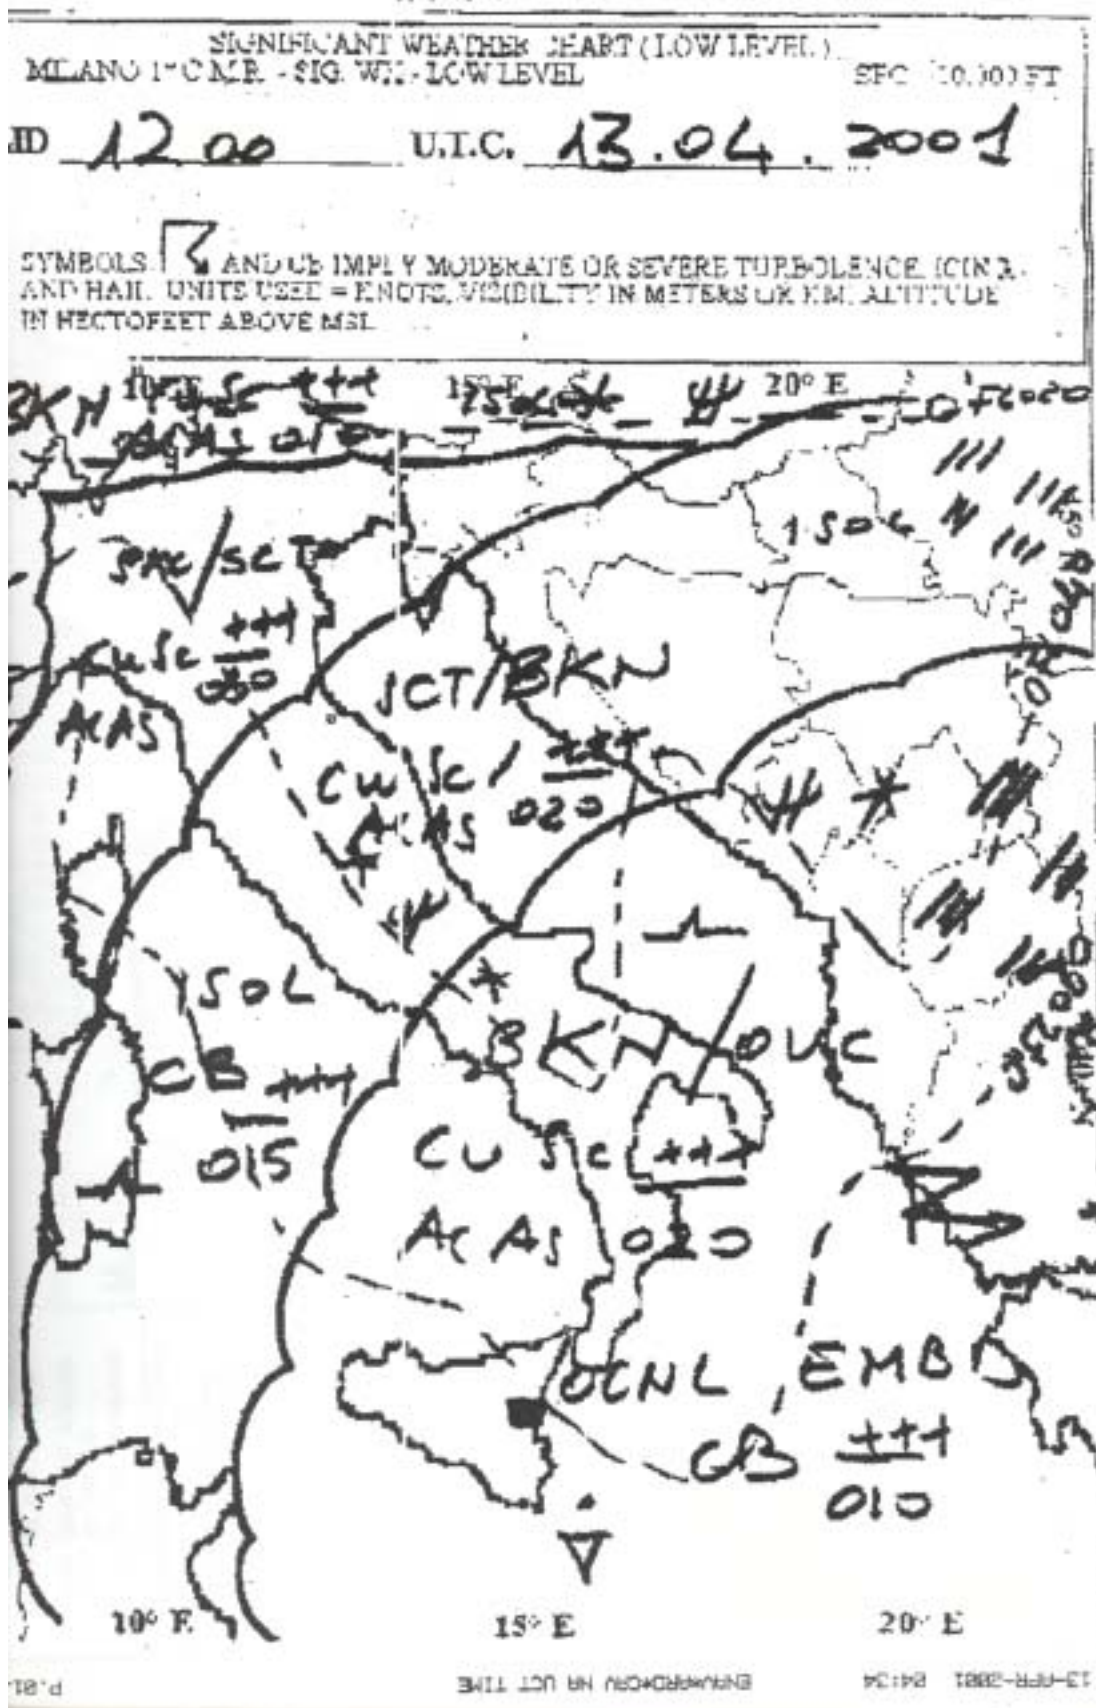 SIGNIFICANT WEATHER CHART (LOW LEVEL)
MILANO - SIG. WX - LOW LEVEL SFC 10.000 FT
ID 12 00 U.T.C. 13.04.2001
SYMBOLS AND CB IMPLY MODERATE OR SEVERE TURBOLENCE, ICING
AND HAIL. UNITS USED = KNOTS, VISIBILITY IN METERS OR KM. ALTITUDE
IN HECTOFEET ABOVE MSL
10° E 15° E 20° E
BKN +++
ACAS 010
0°FL020
SKC/SCT
CuSc +++
030
ACAS
1SOL
SCT/BKN
Cu Sc / +++
ACAS 020
1SOL
CB +++
015
BKN/OVC
Cu Sc +++
ACAS 020
OCNL EMBD
CB +++
010
10° E 15° E 20° E
P.01 13-APR-2001 04:34